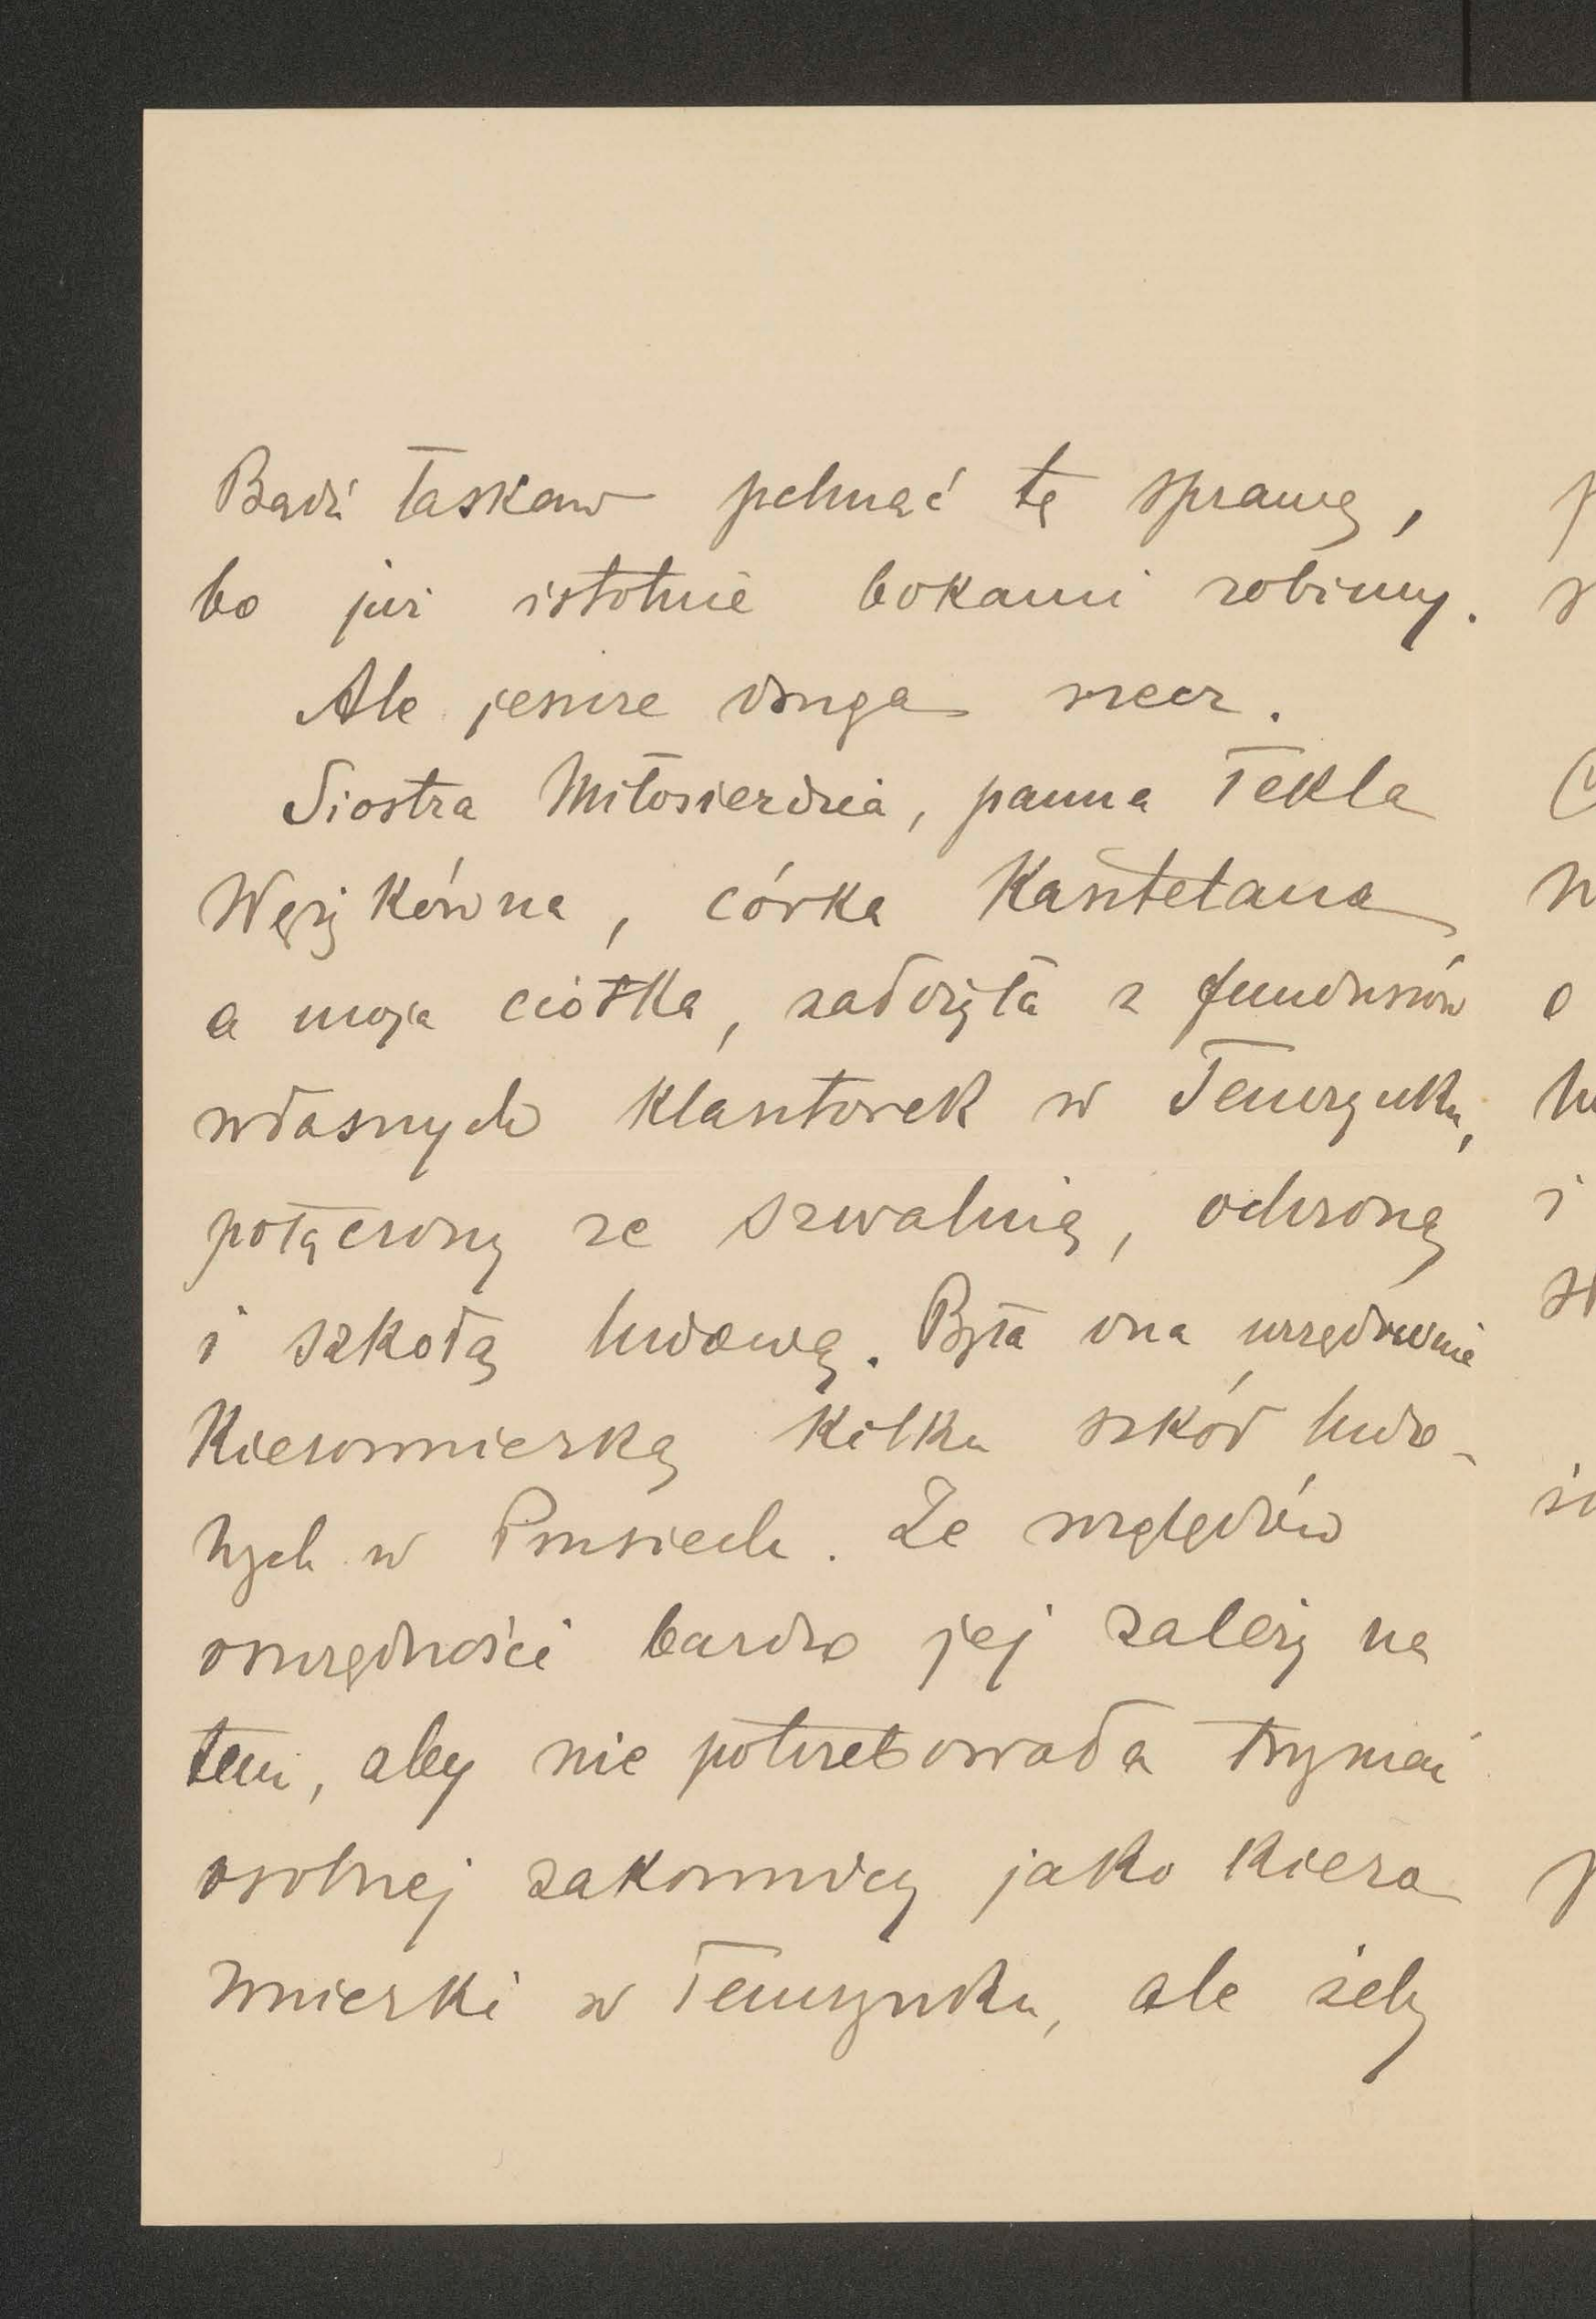 Bądź łaskaw pchnąć tę sprawę,
bo już istotnie bokami robimy.
Ale jeszcze druga rzecz.
Siostra Miłosierdzia, panna Tekla
Wężykówna, córka Kasztelana
a moja ciotka, założyła z funduszów
własnych klasztorek w Tenczynku,
połączony ze szwalnią, ochroną
i szkołą ludową. Była ona urzędownie
Kierowniczką kilku szkół ludo-
wych w Prusiech. Ze względów
oszczędności bardzo jej zależy na
tem, aby nie potrzebowała trzymać
osobnej zakonnicy jako kiero
wniczki w Tenczynku, ale żeby